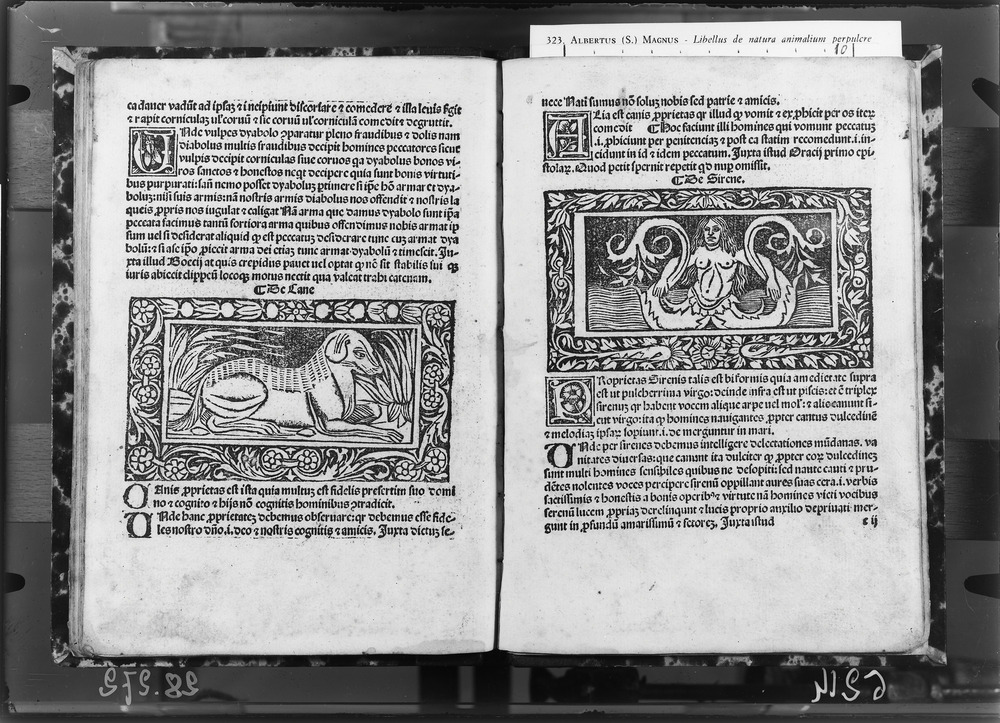 323. ALBERTUS (S.) MAGNUS - Libellus de natura animalium perpulcre
10
cadauer vadūt ad ipsaʒ ⁊ incipiunt discorıare ⁊ comedere ⁊ illa leuis fugit
⁊ rapit corniculaʒ ul' coruū ⁊ sic coruū ul' corniculā comedit ⁊ degruttit.
UNde vulpes dyabolo ꝯparatur pleno fraudibus ⁊ dolis nam
diabolus multis fraudibus decipit homines peccatores sicut
vulpis decipit corniculas siue coruos qa dyabolus bonos vi-
ros sanctos ⁊ honestos neqt decipere quia sunt bonis virtuti-
bus purpurati: sañ nemo posset dyaboluʒ ꝑtimere si ipe bō armar et dya-
boluʒ: nisi suis armis: nā nostris armis diabolus nos offendit ⁊ nostris la
queis ꝓpris nos iugulat ⁊ caligat Nā arma que damus dyabolo sunt ipa
peccata facimus tantū fortiora arma quibus offendimus nobis armat ip
sum uel si desiderat aliquid qd est peccatuʒ desiderare tunc cuʒ armat dya
bolū: ⁊ si ase ipo ꝓiecit arma dei etiaʒ tunc armat dyabolū ⁊ timescit. Ju-
xta illud Boecij at quis crepidus pauet uel optat qd nō sit stabilis sui qʒ
iuris abiecit clippeū locoqʒ motus nectit qua valeat trahi catenam.
¶ De Cane
CAnis ꝓprietas est ista quia multuʒ est fidelis presertim suo domi
no ⁊ cognito ⁊ hijs nō cognitis hominibus ꝯtradicit.
UNde hanc ꝓprietateʒ debemus obseruare: qr debemus esse fide-
les nostro dño .i. deo ⁊ nostris cognitis ⁊ amicis. Juxta dictuʒ se-
nece Nati sumus nō soluʒ nobis sed patrie ⁊ amicis.
ALia est canis ꝓprietas qr illud qd vomit ⁊ exꝓhicit per os iteʒ
comedit ¶ Hoc faciunt illi homines qui vomunt peccatuʒ
.i. ꝓhiciunt per penitenciaʒ ⁊ post ea statim recomedunt .i. in-
cidunt in id ⁊ idem peccatum. Juxta istud Oracij primo epi-
stolaꝝ. Quod petit spernit repetit qd nup omisit.
¶ De Sirene.
PRoprietas Sirenis talis est biformis quia a medietate supra
est ut pulcherrima virgo: deinde infra est ut piscis: et ē triplex
sirenuʒ qr habent vocem alique arpe uel mol': ⁊ alie canunt si-
cut virgo: ita qd homines nauigantes ꝓpter cantus dulcedinē
⁊ melodiaʒ ipsaꝝ sopiunt .i. demerguntur in mari.
UNde per sirenes debemus intelligere delectationes mūdanas. va
nitates diuersas: que canunt ita dulciter qd ꝓpter eoꝝ dulcedineʒ
sunt multi homines sensibiles quibus ne desopiti: sed naute cauti ⁊ pru
dētes nolentes voces percipere sirenū oppillant aures suas cera .i. verbis
sactissimis ⁊ honestis a bonis operib⁹ ⁊ virtute nā homines victi vocibus
serenū lucem ꝓpriaʒ derelinquunt ⁊ lucis proprio auxilio depriuati mer-
gunt in ꝓfundū amarissimū ⁊ fetoreʒ. Juxta istud
c ij
28.272
6214